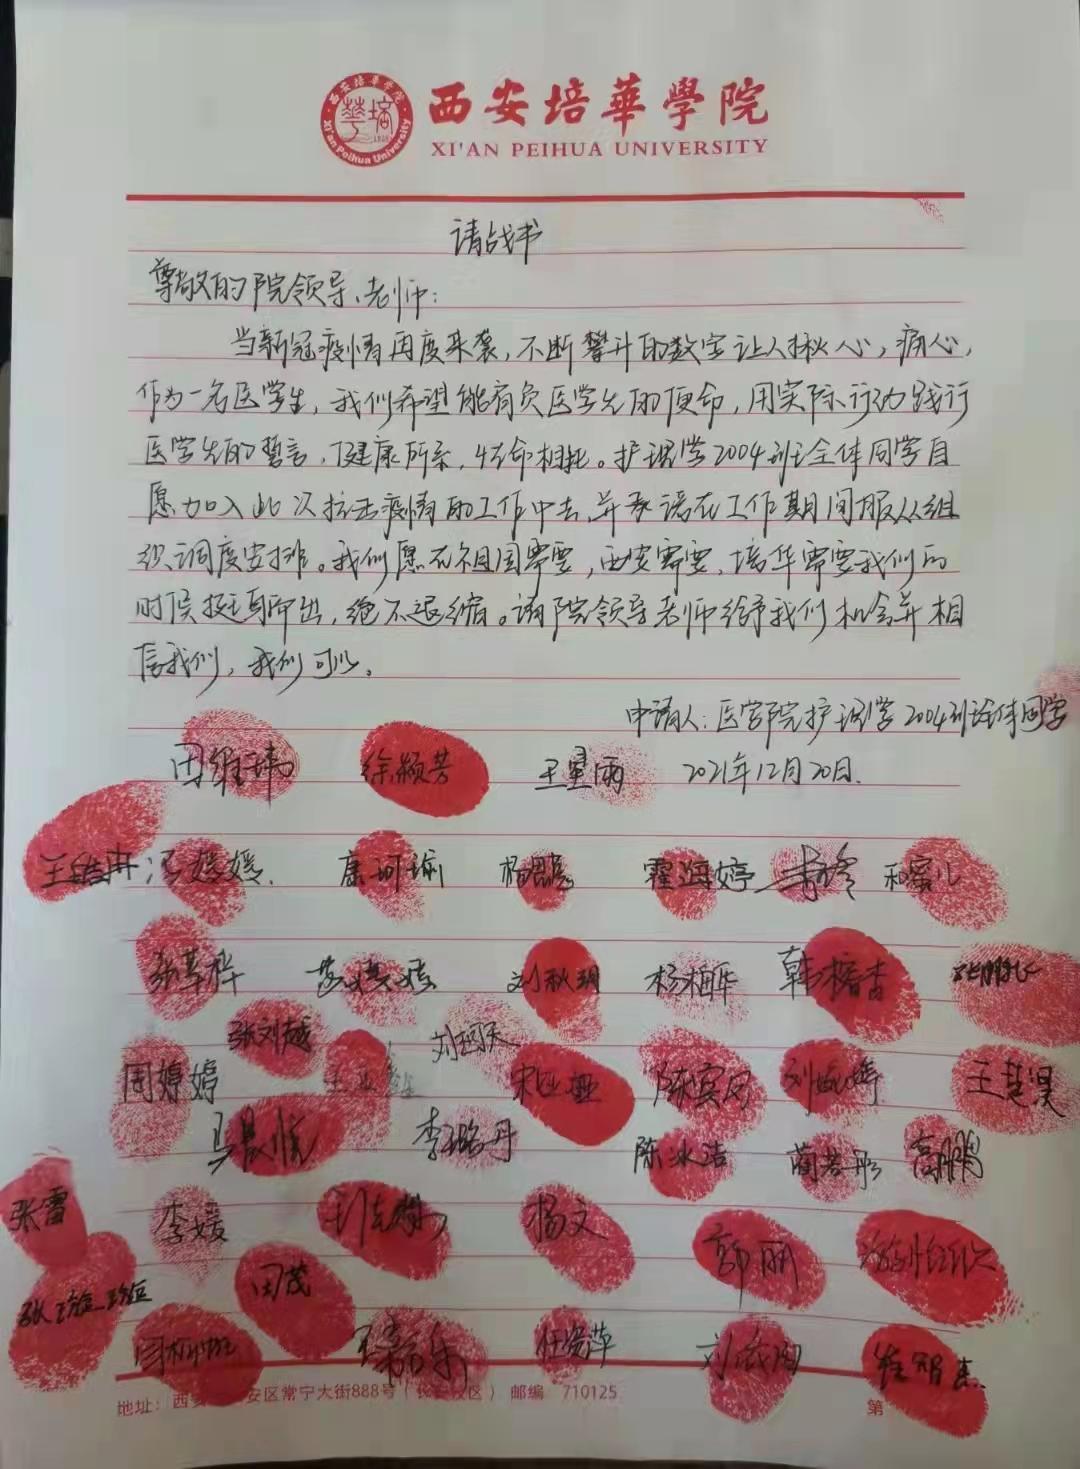 西安培華學院
XI'AN PEIHUA UNIVERSITY
西安培华学院
Xi'an Peihua University
请战书
尊敬的院领导、老师：
当新冠疫情再度来袭，不断攀升的数字让人揪心，痛心，
作为一名医学生，我们希望能肩负医学生的使命，用实际行动践行
医学生的誓言，健康所系，性命相托。护理学2004班全体同学自
愿加入此次抗击疫情的工作中去，并承诺在工作期间服从组
织调度安排。我们愿在祖国需要，西安需要，培华需要我们的
时候挺身而出，绝不退缩。请院领导老师给予我们机会并相
信我们，我们可以。
申请人：医学院护理学2004班全体同学
田维玮 徐颖芳 王星雨 2021年12月20日.
冯媛媛. 康珂瑜 霍海婷 和蜜儿
刘秋玥 杨柏华 韩椿杏
张刘越
周婷婷 宋亚娅 陈宾凤 王楚淏
马晨悦 李璐丹 陈冰洁 蔺若彤 高鹏
张雪 李媛 杨文 郭丽
田茂
王嘉乐 任瓷萍 崔智杰
地址：西安 安区常宁大街888号（长安校区） 邮编 710125 第